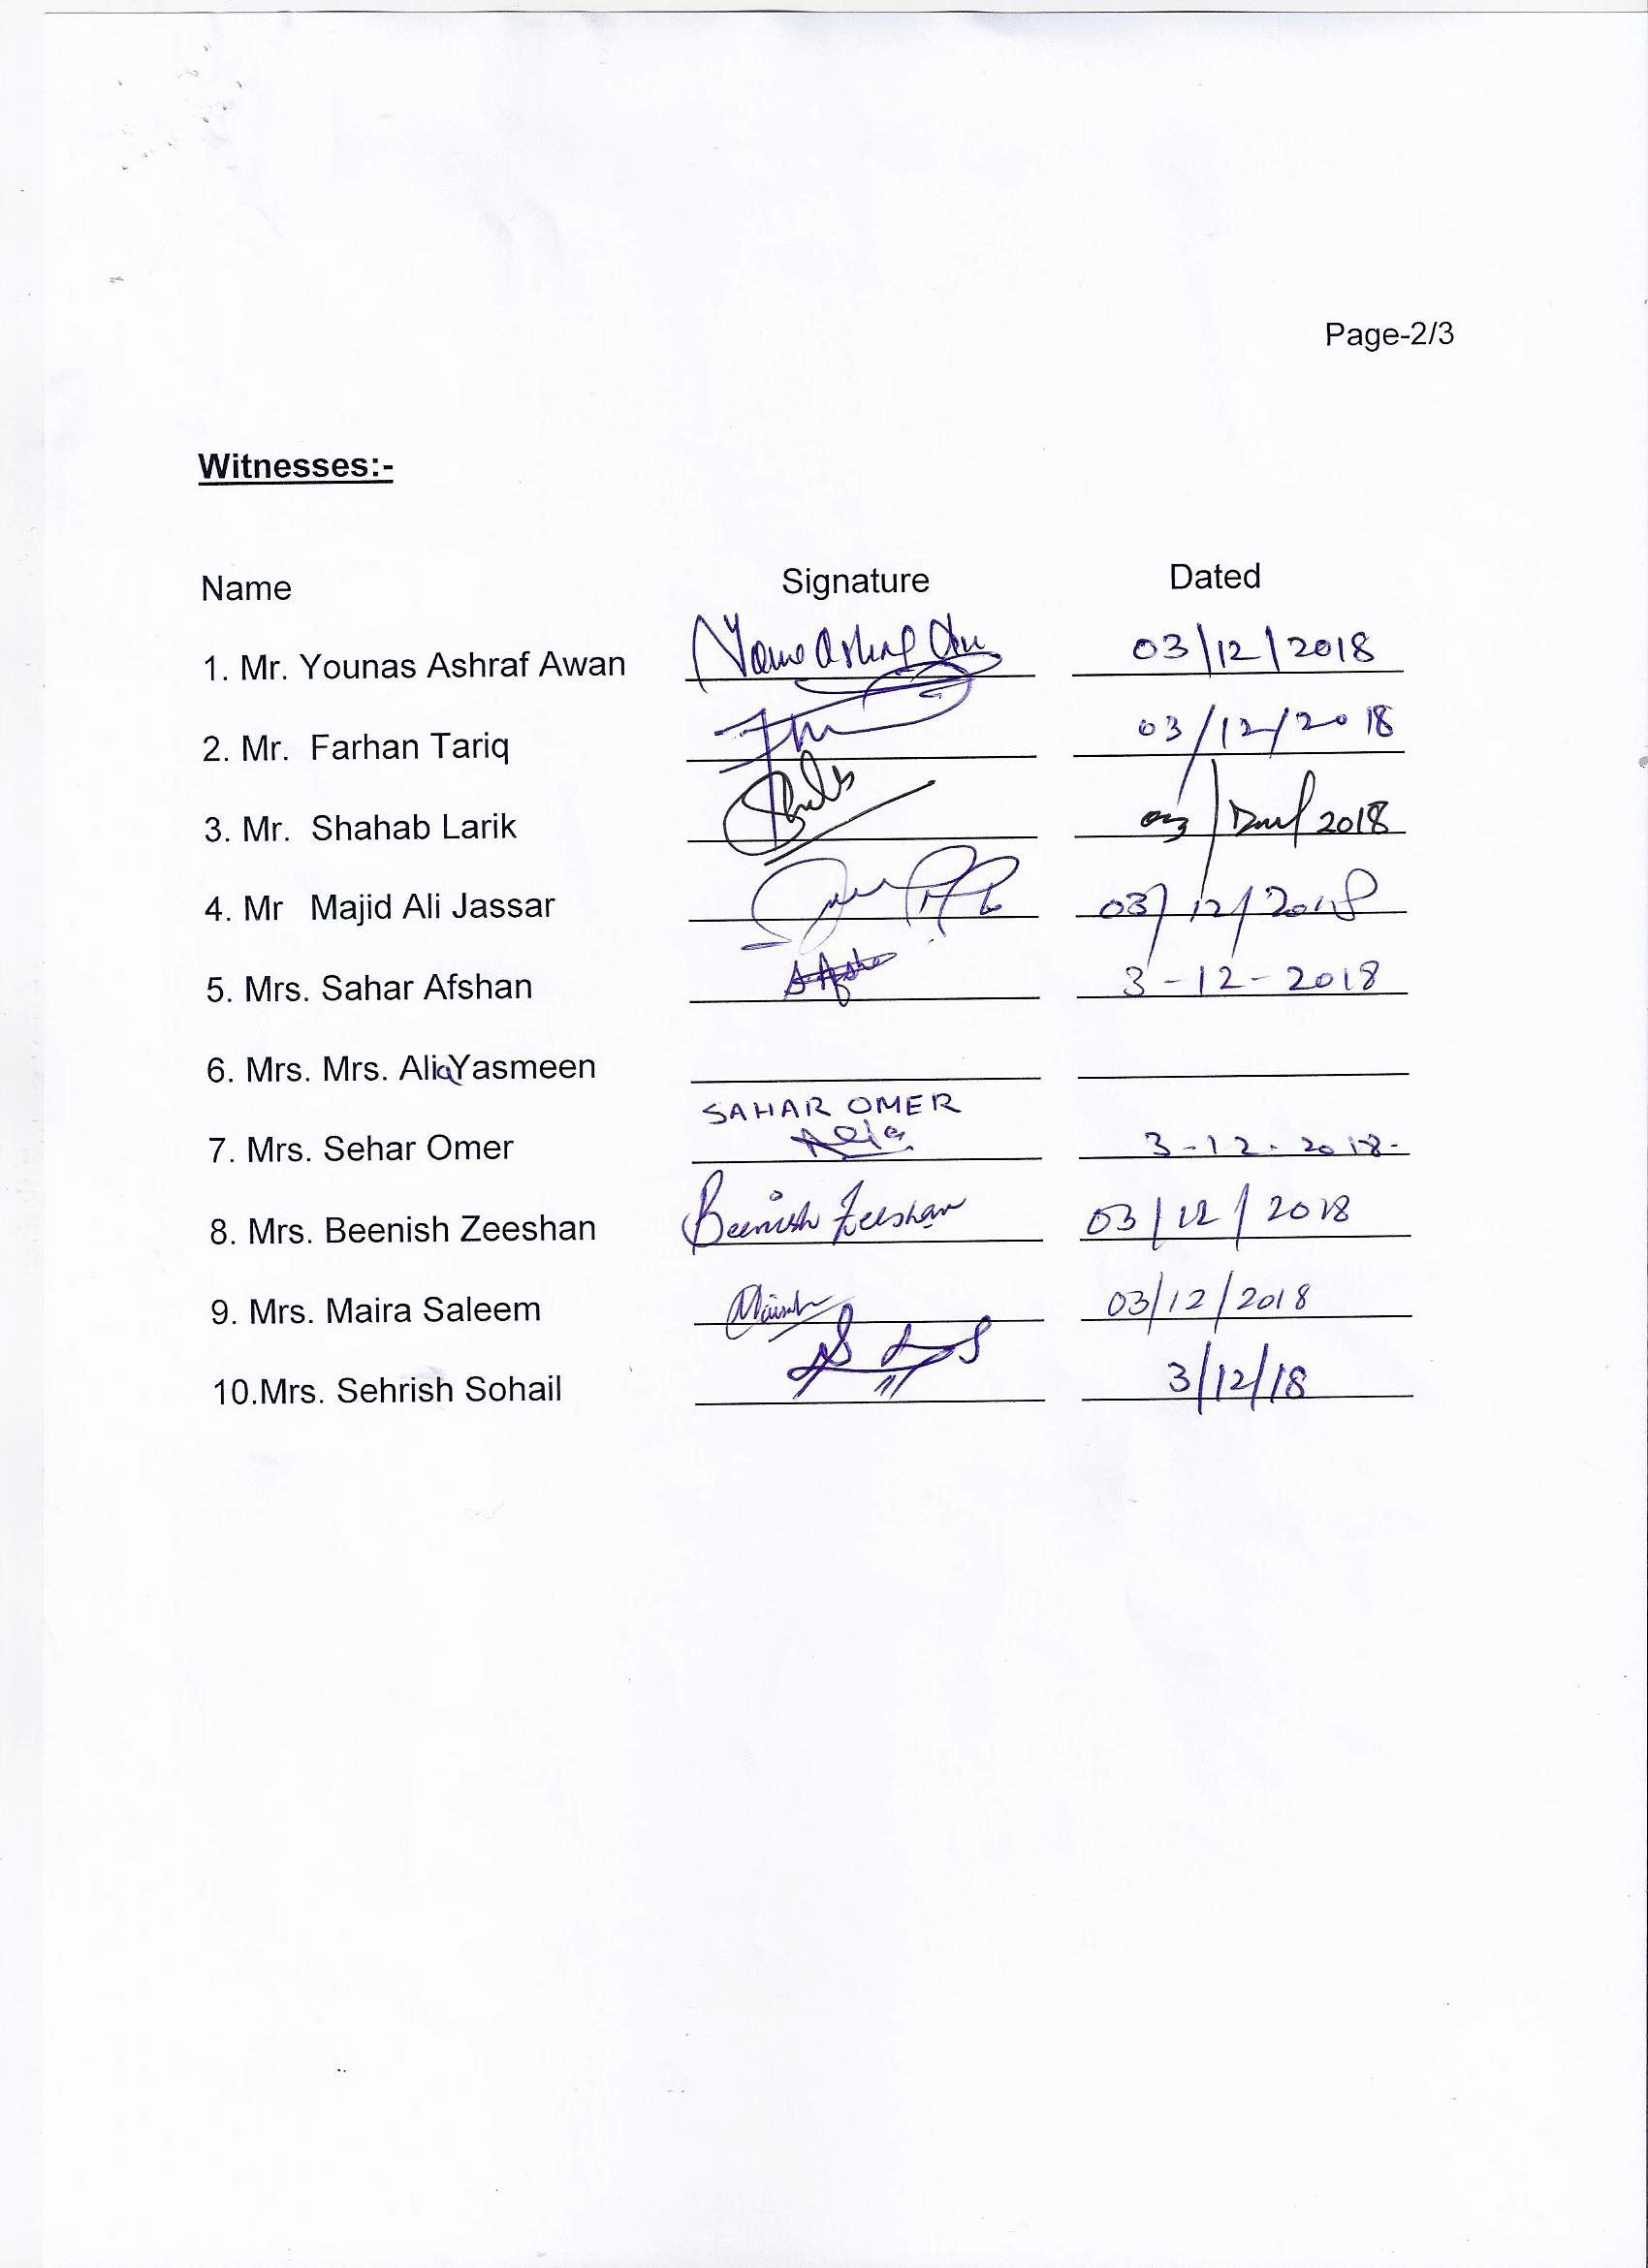 Page-2/3
Witnesses:-
Name Signature Dated
1. Mr. Younas Ashraf Awan 03/12/2018
2. Mr. Farhan Tariq 03/12/2018
3. Mr. Shahab Larik 03/ 2018
4. Mr Majid Ali Jassar 03/12/2018
5. Mrs. Sahar Afshan 3-12-2018
6. Mrs. Mrs. AliaYasmeen
SAHAR OMER
7. Mrs. Sehar Omer Alia 3-12-2018-
8. Mrs. Beenish Zeeshan Beenish Zeeshan 03/12/2018
9. Mrs. Maira Saleem 03/12/2018
10.Mrs. Sehrish Sohail 3/12/18